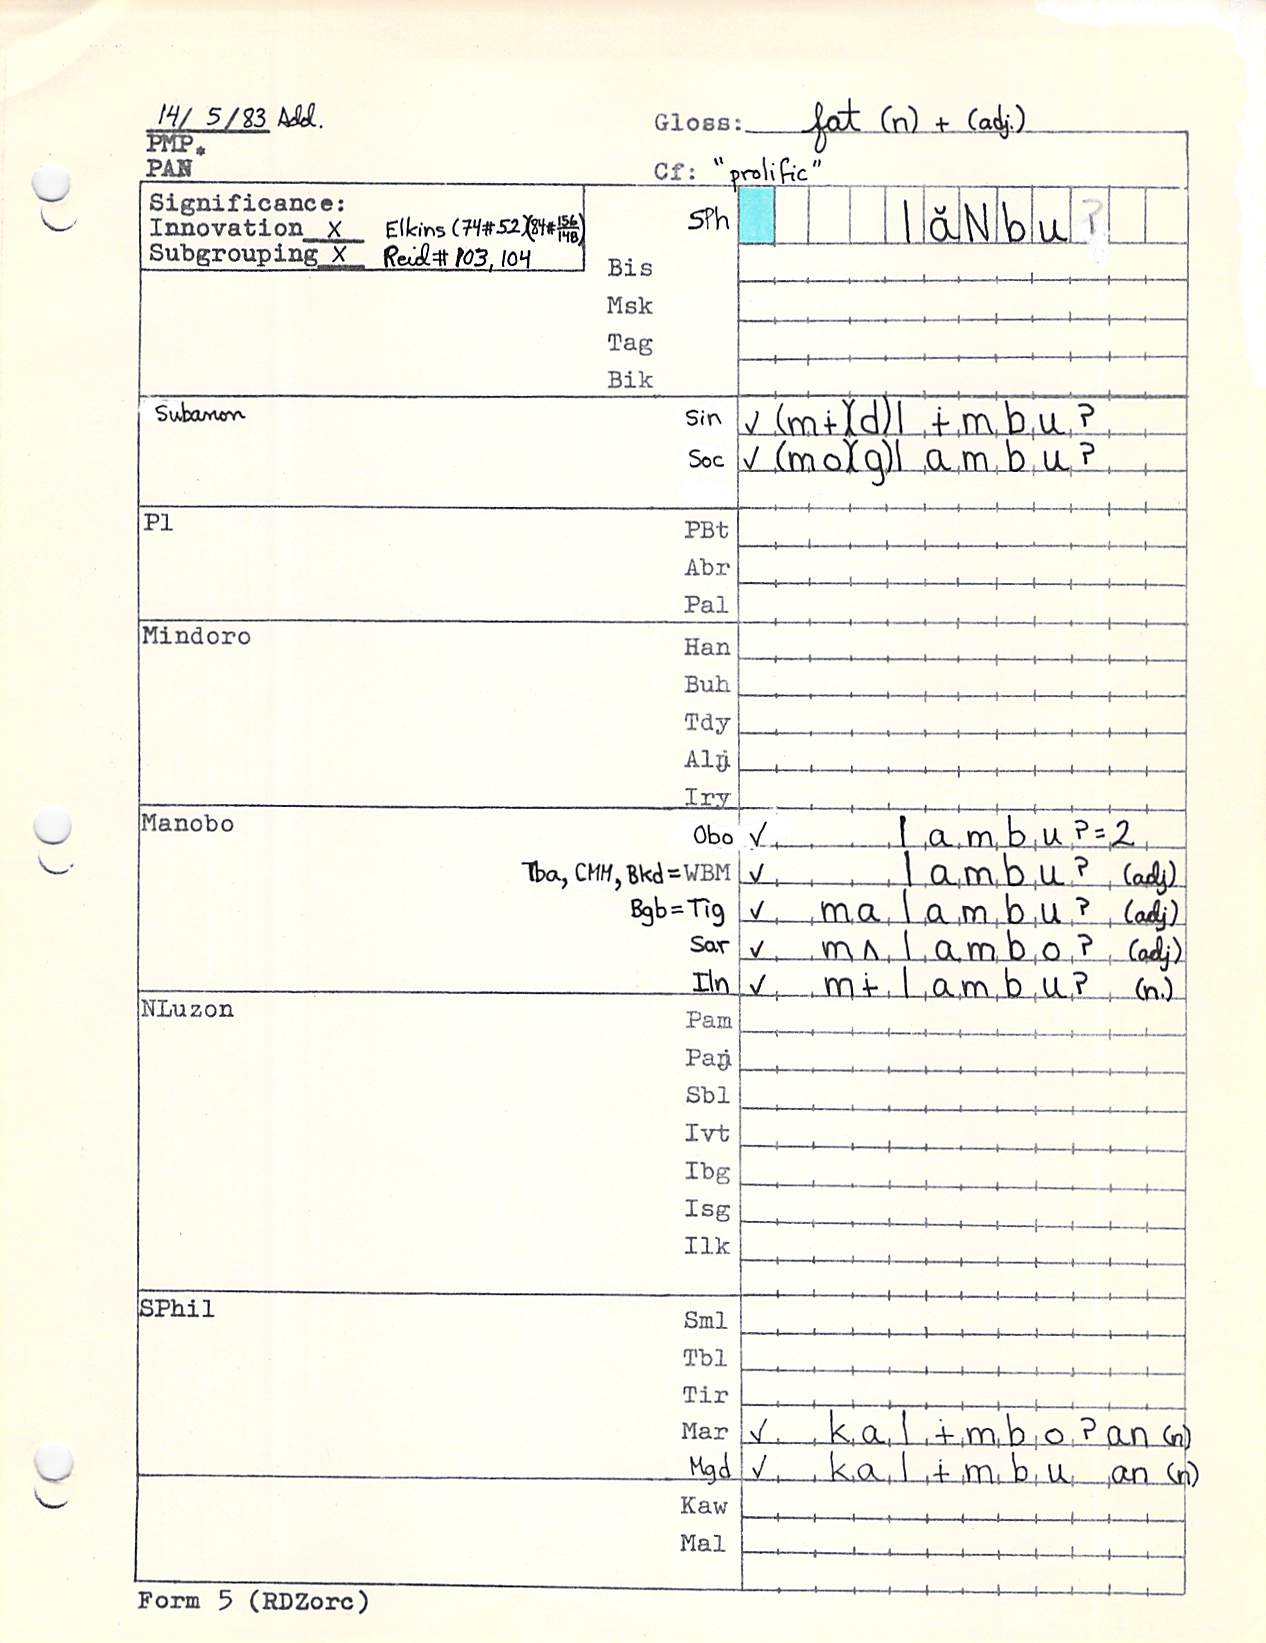 14/ 5/83 Add.
Gloss: fat (n) + (adj.)
PMP.
PAN
Cf: "prolific"
Significance:
Innovation X Elkins (74#52)(84#156/148)
Subgrouping X Reid# 103, 104
SPh lăNbu?
Bis
Msk
Tag
Bik
Subanon
Sin ✓ (mɨ)(d)lɨmbu?
Soc ✓ (mo)(g)lambu?
Pl
PBt
Abr
Pal
Mindoro
Han
Buh
Tdy
Alŋ
Iry
Manobo
Obo ✓ lambu?=2
Tba, CMM, Bkd=WBM ✓ lambu? (adj)
Bgb=Tig ✓ malambu? (adj)
Sar ✓ mʌlambo? (adj)
Iln ✓ mɨlambu? (n.)
NLuzon
Pam
Paŋ
Sbl
Ivt
Ibg
Isg
Ilk
SPhil
Sml
Tbl
Tir
Mar ✓ kalɨmbo?an (n)
Mgd ✓ kalɨmbu an (n)
Kaw
Mal
Form 5 (RDZorc)